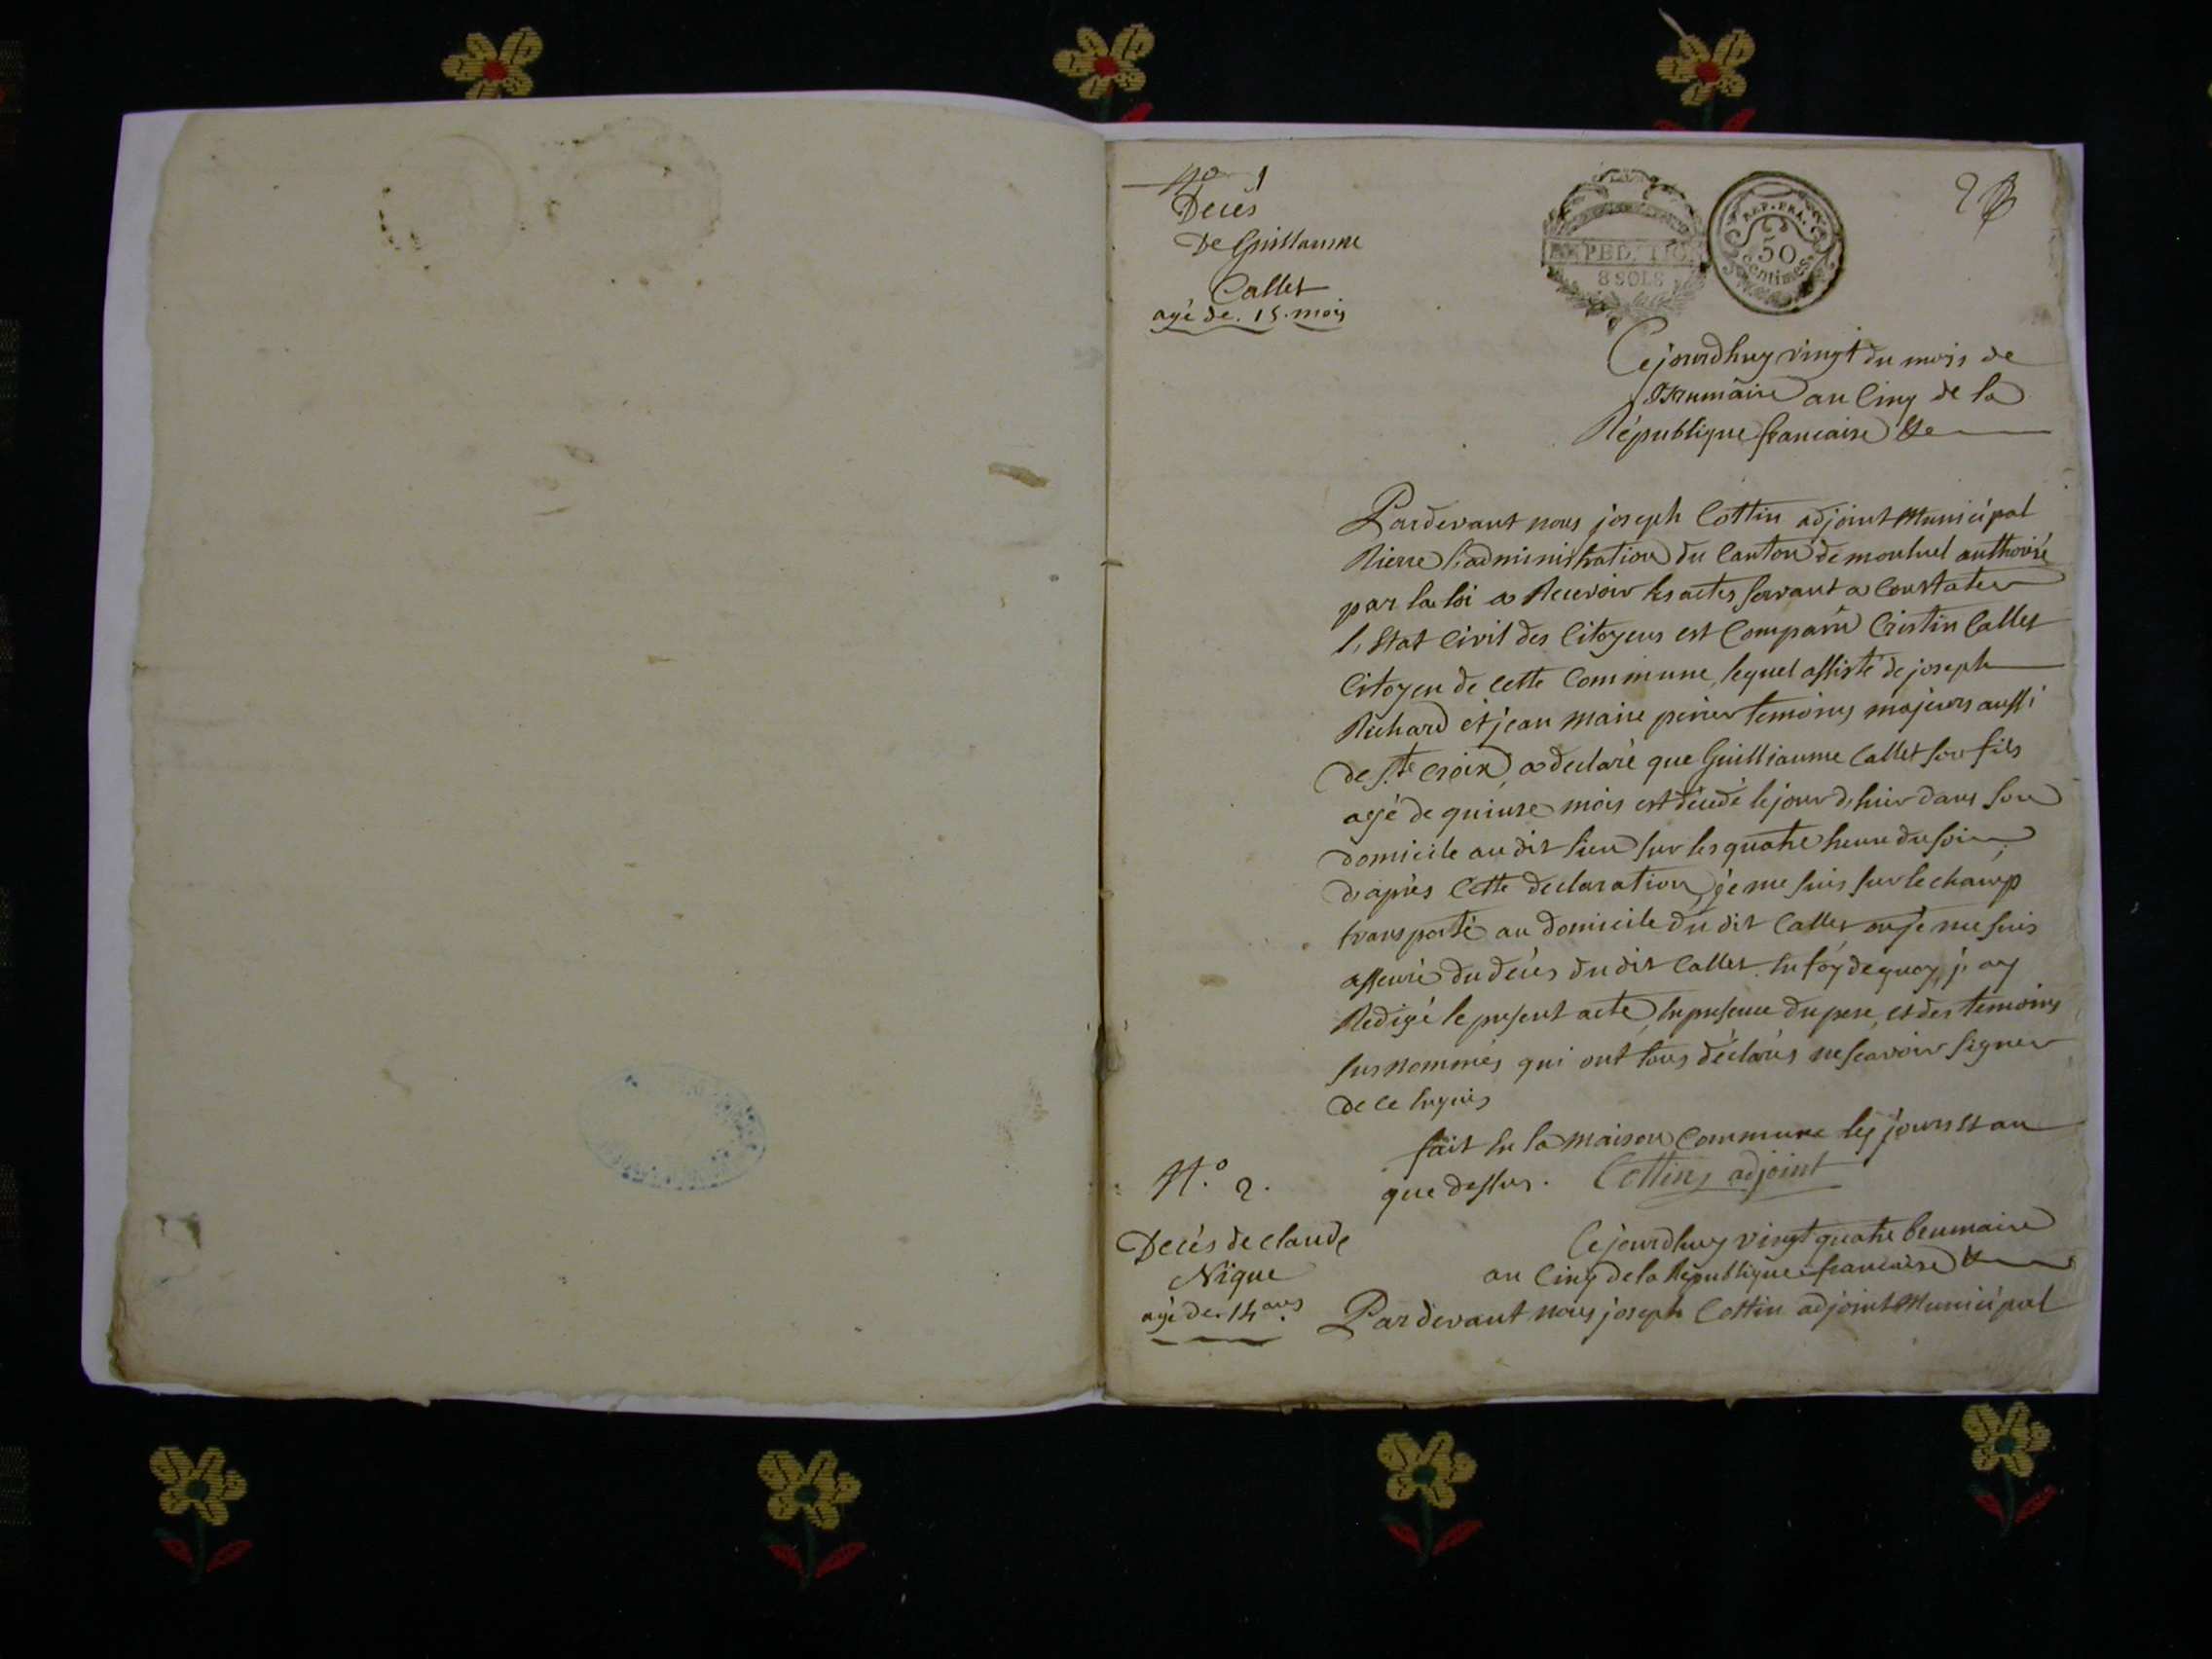 No 1
Decès
De Guillaume
Callet
agé de. 15. mois
EXPEDITIO
8 SOLS
REP. FRA.
50
centimes
2
Cejourdhuy vingt du mois de
Brumaire an Cinq de la
République francaise &e
Pardevant nous joseph Cottin adjoint Municipal
l'administration du Canton de montuel authorisé
par la loi a Recevoir les actes servant a Constater
l'Etat Civil des Citoyens est Comparu Cristin Callet
Citoyen de cette Commune, lequel assisté de joseph
Richard et jean marie perier temoins majeurs aussi
de Ste croix, a declaré que Guilliaume Callet son fils
agé de quinse mois est décédé le jour d'hier dans son
domicile au dit lieu sur les quatre heure du soir,
d'après cette declaration, je me suis sur le champ
transporté au domicile du dit Callet ou je me suis
asseuré du décès du dit Callet. En foy de quoy, j'ay
Redigé le present acte, En presence du pere, et des temoins
susnommés qui ont tous déclarés ne scavoir signer
de ce Enquis
fait En la maison Commune les jours et an
que dessus. Cottin, adjoint
N.o 2.
Decès de claude
Nique
agé de. 14 ans.
Cejourdhuy vingt quatre beumaire
an Cinq de la République francaise &
Pardevant nous joseph Cottin adjoint Municipal